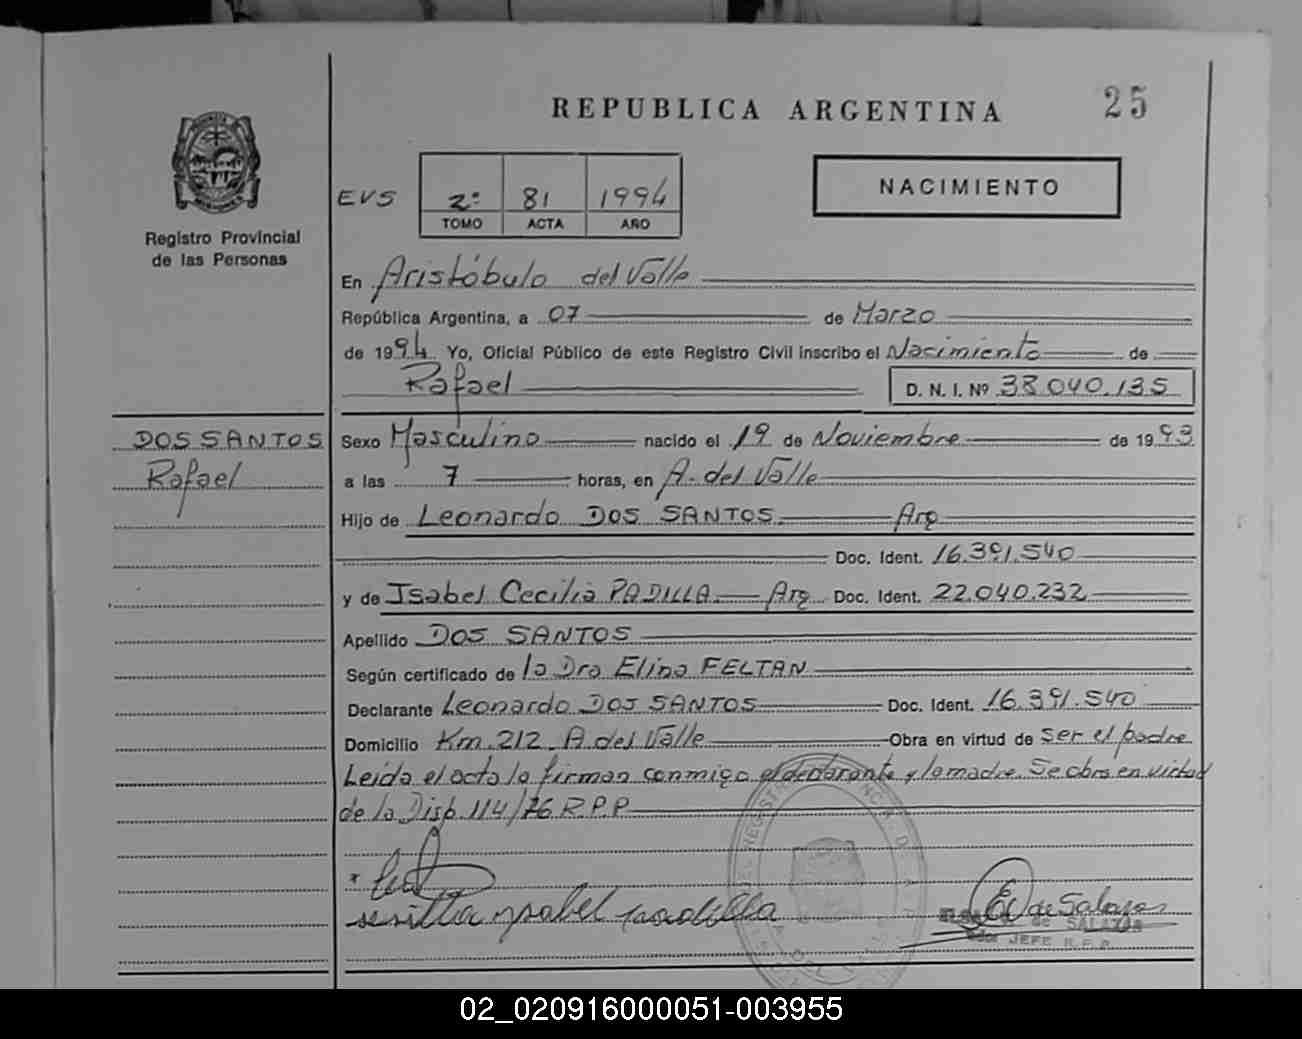 REPUBLICA ARGENTINA
25
Registro Provincial
de las Personas
EVS
2º 81 1994
TOMO ACTA AÑO
NACIMIENTO
En Aristóbulo del Valle
República Argentina, a 07 de Marzo
de 1994 Yo, Oficial Público de este Registro Civil inscribo el Nacimiento de
Rafael D. N. I. Nº 38.040.135
DOS SANTOS
Rafael
Sexo Masculino nacido el 19 de Noviembre de 1993
a las 7 horas, en A. del Valle
Hijo de Leonardo DOS SANTOS. Arg
Doc. Ident. 16.391.540
y de Isabel Cecilia PADILLA. Arg Doc. Ident. 22.040.232
Apellido DOS SANTOS
Según certificado de la Dra Elina FELTAN
Declarante Leonardo DOS SANTOS Doc. Ident. 16.391.540
Domicilio Km. 212. A del Valle Obra en virtud de ser el padre
Leída el acta la firman conmigo el declarante y la madre. Se obra en virtud
de la Disp. 114/76 R.P.P
Isabel Padilla
E de Salazar
de SALAZAR
JEFE R.P.P.
02_020916000051-003955